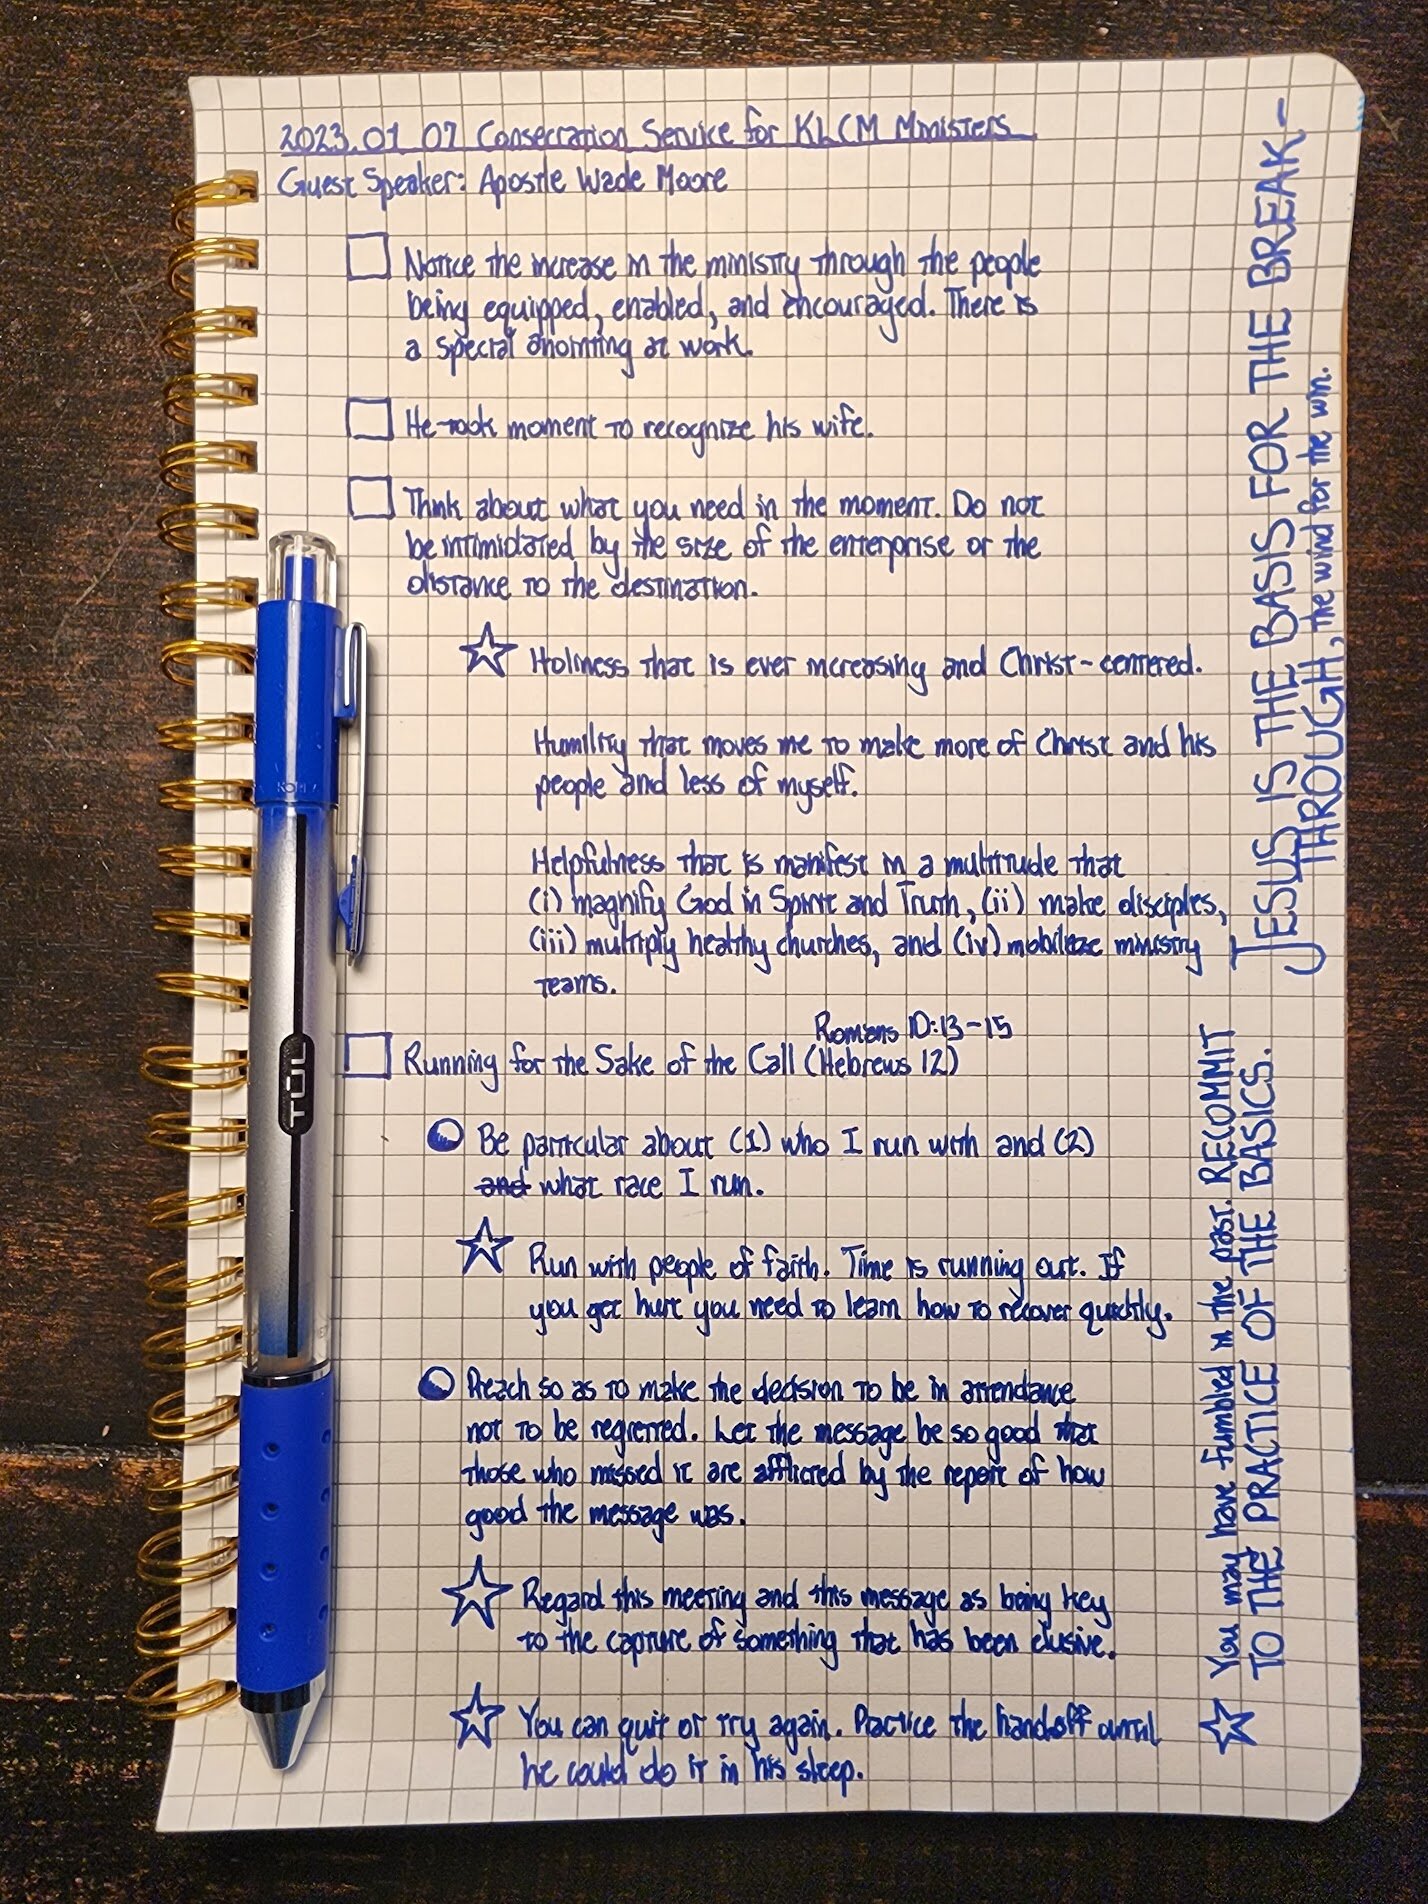 2023.01.07 Consecration Service for KLCM Ministers
Guest Speaker: Apostle Wade Moore
Notice the increase in the ministry through the people
being equipped, enabled, and encouraged. There is
a special anointing at work.
He took moment to recognize his wife.
Think about what you need in the moment. Do not
be intimidated by the size of the enterprise or the
distance to the destination.
Holiness that is ever increasing and Christ-centered.
Humility that moves me to make more of Christ and his
people and less of myself.
Helpfulness that is manifest in a multitude that
(i) magnify God in Spirit and Truth, (ii) make disciples,
(iii) multiply healthy churches, and (iv) mobilize ministry
teams.
Romans 10:13-15
Running for the Sake of the Call (Hebrews 12)
Be particular about (1) who I run with and (2)
and what race I run.
Run with people of faith. Time is running out. If
you get hurt you need to learn how to recover quickly.
Preach so as to make the decision to be in attendance
not to be regretted. Let the message be so good that
those who missed it are afflicted by the report of how
good the message was.
Regard this meeting and this message as being key
to the capture of something that has been elusive.
You can quit or try again. Practice the handoff until
he could do it in his sleep.
You may have fumbled in the past. RECOMMIT
TO THE PRACTICE OF THE BASICS.
JESUS IS THE BASIS FOR THE BREAK-
THROUGH, the wind for the win.
TUL